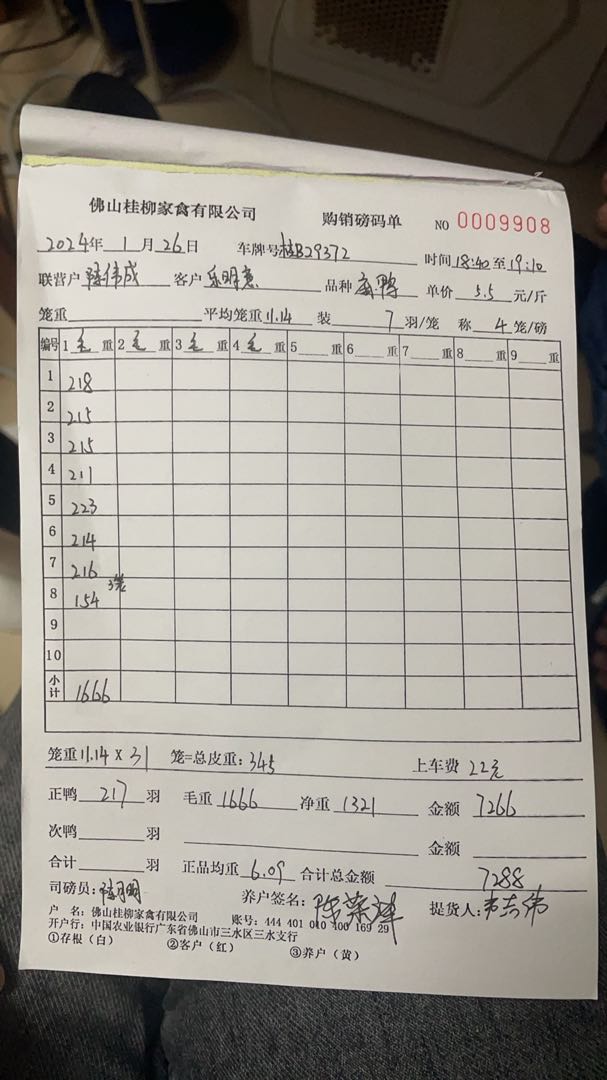 佛山桂柳家禽有限公司 购销磅码单 NO 0009908
2024年 1 月 26 日 车牌号桂B29372 时间 18:40 至 19:10
联营户 陈伟成 客户 品种 鸭 单价 5.5 元/斤
笼重 平均笼重 11.14 装 7 羽/笼 称 4 笼/磅
编号 1 毛 重 2 毛 重 3 毛 重 4 毛 重 5 重 6 重 7 重 8 重 9 重
1 218
2 215
3 215
4 211
5 223
6 214
7 216
8 154 3笼
9
10
小计 1666
笼重 11.14 X 31 笼=总皮重: 345 上车费 22元
正鸭 217 羽 毛重 1666 净重 1321 金额 7266
次鸭 羽 金额
合计 羽 正品均重 6.09 合计总金额 7288
司磅员: 养户签名: 陈荣 提货人: 韦志伟
户 名: 佛山桂柳家禽有限公司 账号: 444 401 010 400 169 29
开户行: 中国农业银行广东省佛山市三水区三水支行
①存根（白） ②客户（红） ③养户（黄）